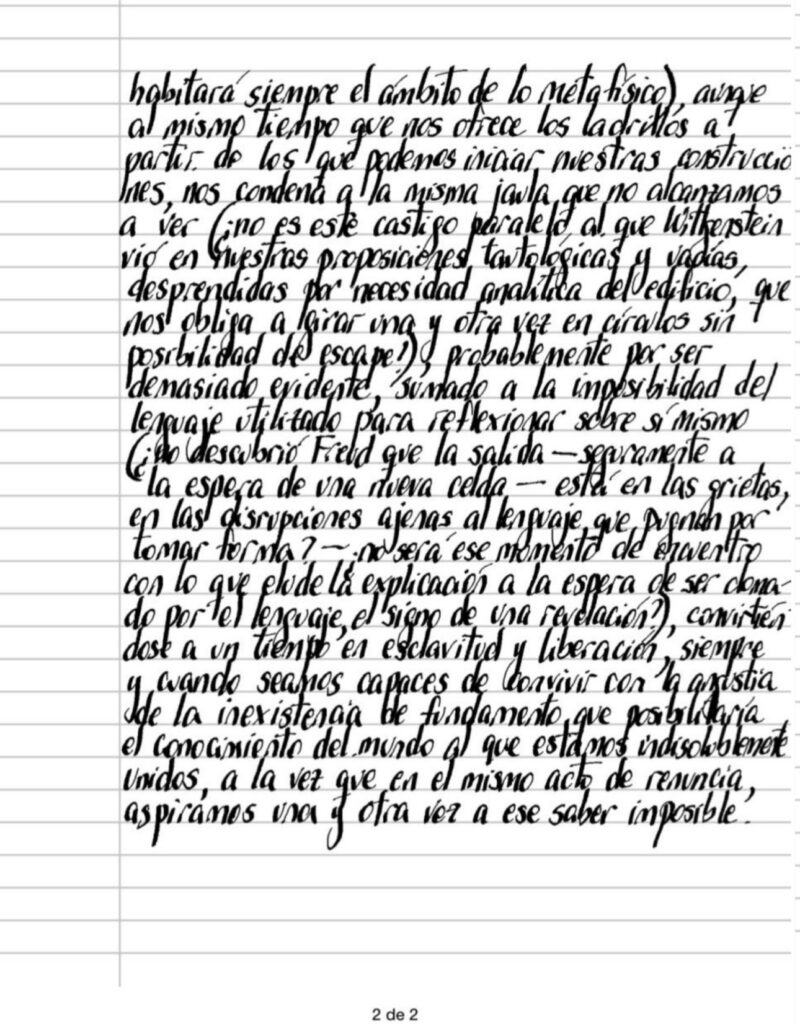 habitará siempre el ámbito de lo metafísico), aunque
al mismo tiempo que nos ofrece los ladrillos a
partir de los que podemos iniciar nuestras construccio
nes, nos condena a la misma jaula que no alcanzamos
a ver (¿no es este castigo paralelo al que Wittgenstein
vió en nuestras proposiciones tautológicas y vacías,
desprendidas por necesidad analítica del edificio, que
nos obliga a girar una y otra vez en círculos sin
posibilidad de escape?), probablemente por ser
demasiado evidente, sumado a la imposibilidad del
lenguaje utilizado para reflexionar sobre sí mismo
(¿no descubrió Freud que la salida — seguramente a
la espera de una nueva celda — está en las grietas,
en las disrupciones ajenas al lenguaje que pugnan por
tomar forma? — ¿no será ese momento de encuentro
con lo que elude la explicación a la espera de ser doma-
do por el lenguaje, el signo de una revelación?), convirtién
dose a un tiempo en esclavitud y liberación, siempre
y cuando seamos capaces de convivir con la angustia
de la inexistencia de fundamento que posibilitaría
el conocimiento del mundo al que estamos indisolublemente
unidos, a la vez que en el mismo acto de renuncia,
aspiramos una y otra vez a ese saber imposible.
2 de 2